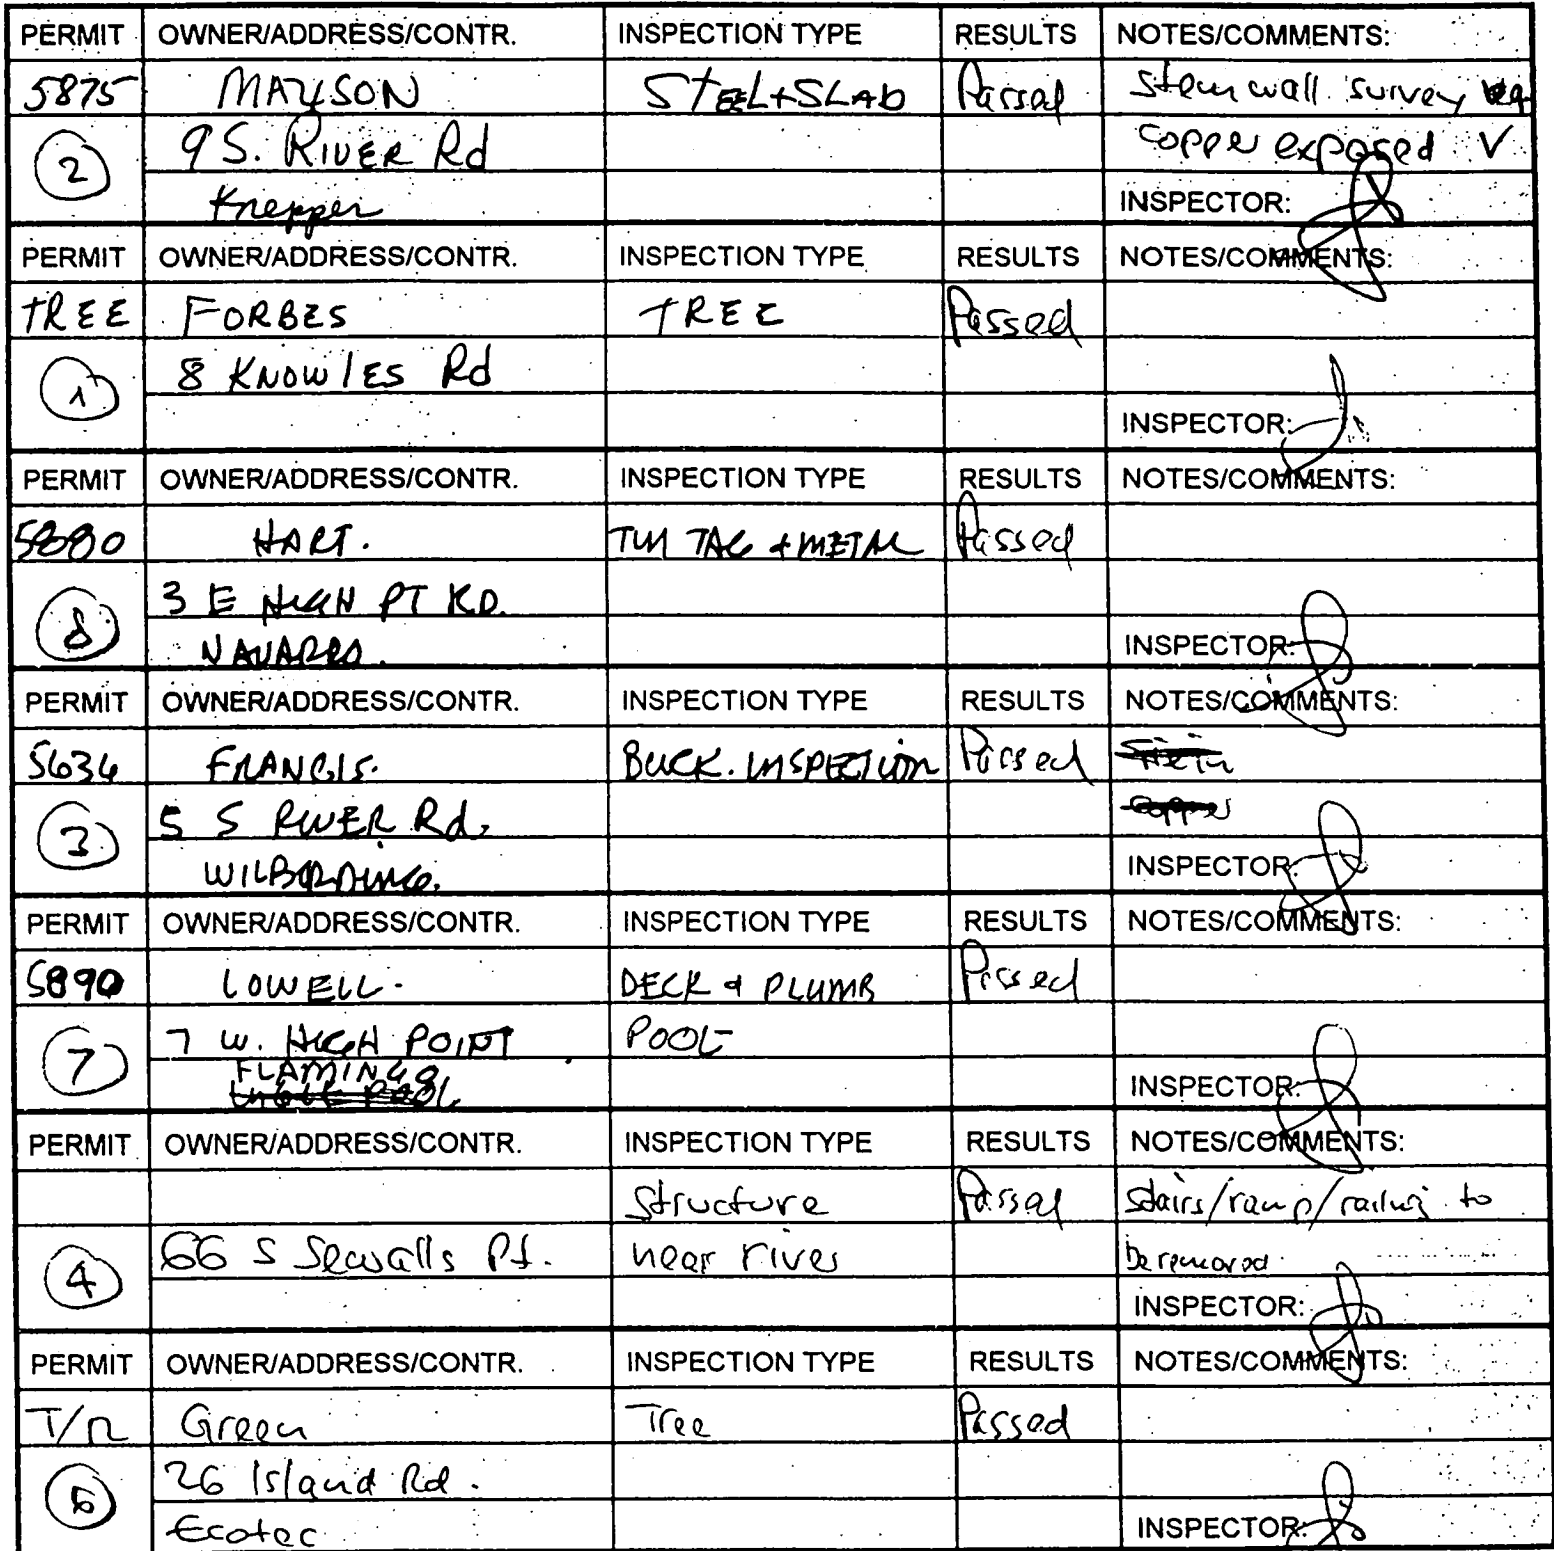 PERMIT OWNER/ADDRESS/CONTR. INSPECTION TYPE RESULTS NOTES/COMMENTS:
5875 MAYSON STEEL+SLAB Passed stem wall survey
② 9 S. RIVER Rd copper exposed √
Knepper INSPECTOR:
PERMIT OWNER/ADDRESS/CONTR. INSPECTION TYPE RESULTS NOTES/COMMENTS:
TREE FORBES TREE Passed
① 8 KNOWLES Rd
INSPECTOR:
PERMIT OWNER/ADDRESS/CONTR. INSPECTION TYPE RESULTS NOTES/COMMENTS:
5880 HART. TIN TAG + METAL Passed
3 E HIGH PT RD.
NAVARRO. INSPECTOR:
PERMIT OWNER/ADDRESS/CONTR. INSPECTION TYPE RESULTS NOTES/COMMENTS:
5634 FRANCIS. BUCK. INSPECTION Passed
③ 5 S RIVER Rd. copper
WILBERDING. INSPECTOR:
PERMIT OWNER/ADDRESS/CONTR. INSPECTION TYPE RESULTS NOTES/COMMENTS:
5890 LOWELL. DECK & PLUMB Passed
⑦ 7 W. HIGH POINT POOL
FLAMINGO
POOL INSPECTOR:
PERMIT OWNER/ADDRESS/CONTR. INSPECTION TYPE RESULTS NOTES/COMMENTS:
Structure Passed stairs/ramp/railing to
④ 66 S Sewalls Pt. near river be removed.
INSPECTOR:
PERMIT OWNER/ADDRESS/CONTR. INSPECTION TYPE RESULTS NOTES/COMMENTS:
T/R Green Tree Passed
26 Island Rd.
Ecotec INSPECTOR: